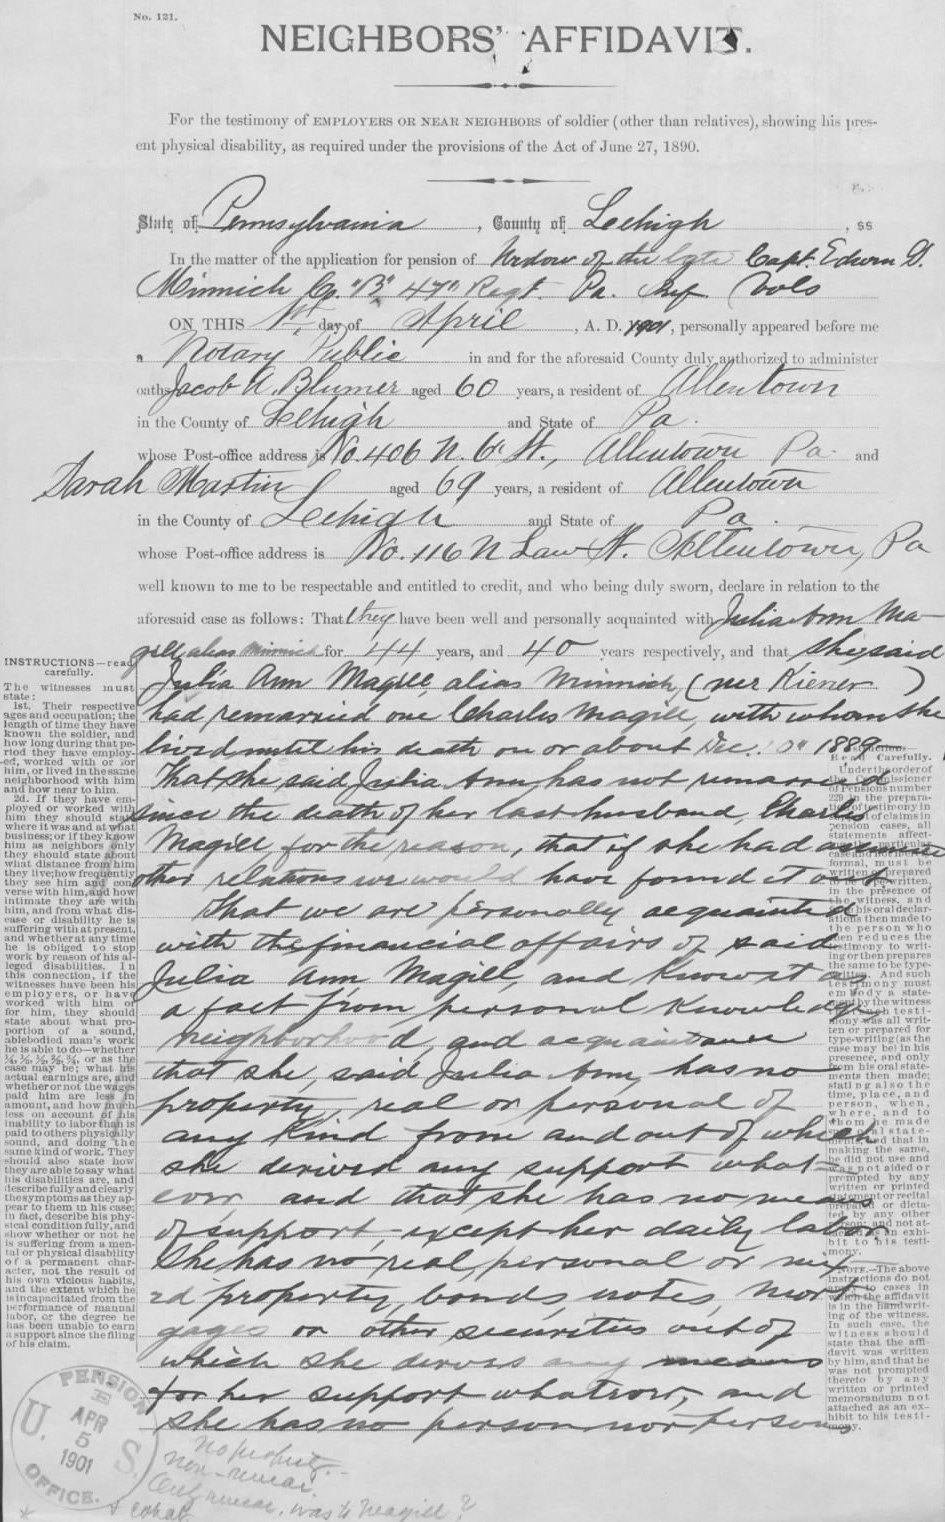 No. 121.
NEIGHBORS' AFFIDAVIT.
For the testimony of EMPLOYERS OR NEAR NEIGHBORS of soldier (other than relatives), showing his pres-
ent physical disability, as required under the provisions of the Act of June 27, 1890.
State of Pennsylvania, County of Lehigh, ss
In the matter of the application for pension of Widow of the late Capt. Edwin G.
Minnich Co. "B" 47" Regt. Pa. Inf. Vols
ON THIS 1st, day of April, A. D. 1901, personally appeared before me
a Notary Public in and for the aforesaid County duly authorized to administer
oaths Jacob A. Blumer aged 60 years, a resident of Allentown
in the County of Lehigh and State of Pa.
whose Post-office address is No. 406 N. 6" St., Allentown Pa. and
Sarah Martin aged 69 years, a resident of Allentown
in the County of Lehigh and State of Pa.
whose Post-office address is No. 116 N Law St. Allentown, Pa
well known to me to be respectable and entitled to credit, and who being duly sworn, declare in relation to the
aforesaid case as follows: That they have been well and personally acquainted with Julia Ann Ma-
gill, alias Minnich for 44 years, and 40 years respectively, and that she, said
Julia Ann Magill, alias Minnich, (nee Kiener)
had remarried one Charles Magill, with whom she
lived until his death on or about Dec. 1889
That she said Julia Ann, has not remarried
since the death of her last husband, Charles
Magill, for the reason, that if she had assumed
other relations we would have found it out
That we are personally acquainted
with the financial affairs of said
Julia Ann Magill, and know it as
a fact from personal knowledge
neighborhood, and acquaintance
that she, said Julia Ann, has no
property, real or personal of
any kind from and out of which
she derives any support what-
ever, and that she has no means
of support, except her daily labor
She has no real, personal or mix
ed property, bonds notes, mort
gages or other securities out of
which she derives any means
for her support whatever, and
she has no person nor persons
INSTRUCTIONS—read
carefully.
The witnesses must
state:
1st. Their respective
ages and occupation; the
length of time they have
known the soldier, and
how long during that pe-
riod they have employ-
ed, worked with or for
him, or lived in the same
neighborhood with him
and how near to him.
2d. If they have em-
ployed or worked with
him they should state
where it was and at what
business; or if they know
him as neighbors only
they should state about
what distance from him
they live; how frequently
they see him and con-
verse with him, and how
intimate they are with
him, and from what dis-
ease or disability he is
suffering with at present,
and whether at any time
he is obliged to stop
work by reason of his al-
leged disabilities. In
this connection, if the
witnesses have been his
employers, or have
worked with him or
for him, they should
state about what pro-
portion of a sound,
ablebodied man's work
he is able to do—whether
or as the
case may be; what his
actual earnings are, and
whether or not the wages
paid him are less in
amount, and how much
less on account of his
inability to labor than is
paid to others physically
sound, and doing the
same kind of work. They
should also state how
they are able to say what
his disabilities are, and
describe fully and clearly
the symptoms as they ap-
pear to them in his case;
in fact, describe his phy-
sical condition fully, and
show whether or not he
is suffering from a men-
tal or physical disability
of a permanent char-
acter, not the result of
his own vicious habits,
and the extent which he
is incapacitated from the
performance of manual
labor, or the degree he
has been unable to earn
a support since the filing
of his claim.
Read Carefully.
Under the order of
the Commissioner
of Pensions number
229 in the prepara-
tion of testimony in
of claims in
pension cases, all
statements affect-
ing particular
case and not merely
formal, must be
written or prepared
to be typewritten,
in the presence of
the witness, and
his oral declar-
ations then made to
the person who
then reduces the
testimony to writ-
ing or then prepares
the same to be type-
written. And such
testimony must
embody a state-
ment by the witness
that such testi-
mony was all writ-
ten or prepared for
type-writing (as the
case may be) in his
presence, and only
from his oral state-
ments then made;
stating also the
time, place, and
person, when,
where, and to
whom he made
such oral state-
ments, and that in
making the same,
he did not use and
was not aided or
prompted by any
written or printed
statement or recital
prepared or dicta-
ted by any other
person; and not at-
tached as an exhi-
bit to his testi-
mony.
NOTE.—The above
instructions do not
apply to cases in
which the affidavit
is in the handwrit-
ing of the witness.
In such case, the
witness should
state that the affi-
davit was written
by him, and that he
was not prompted
thereto by any
written or printed
memorandum not
attached as an ex-
hibit to his testi-
mony.
U. S. PENSION OFFICE.
APR
5
1901
no property.
non-remar.
was to Magill?